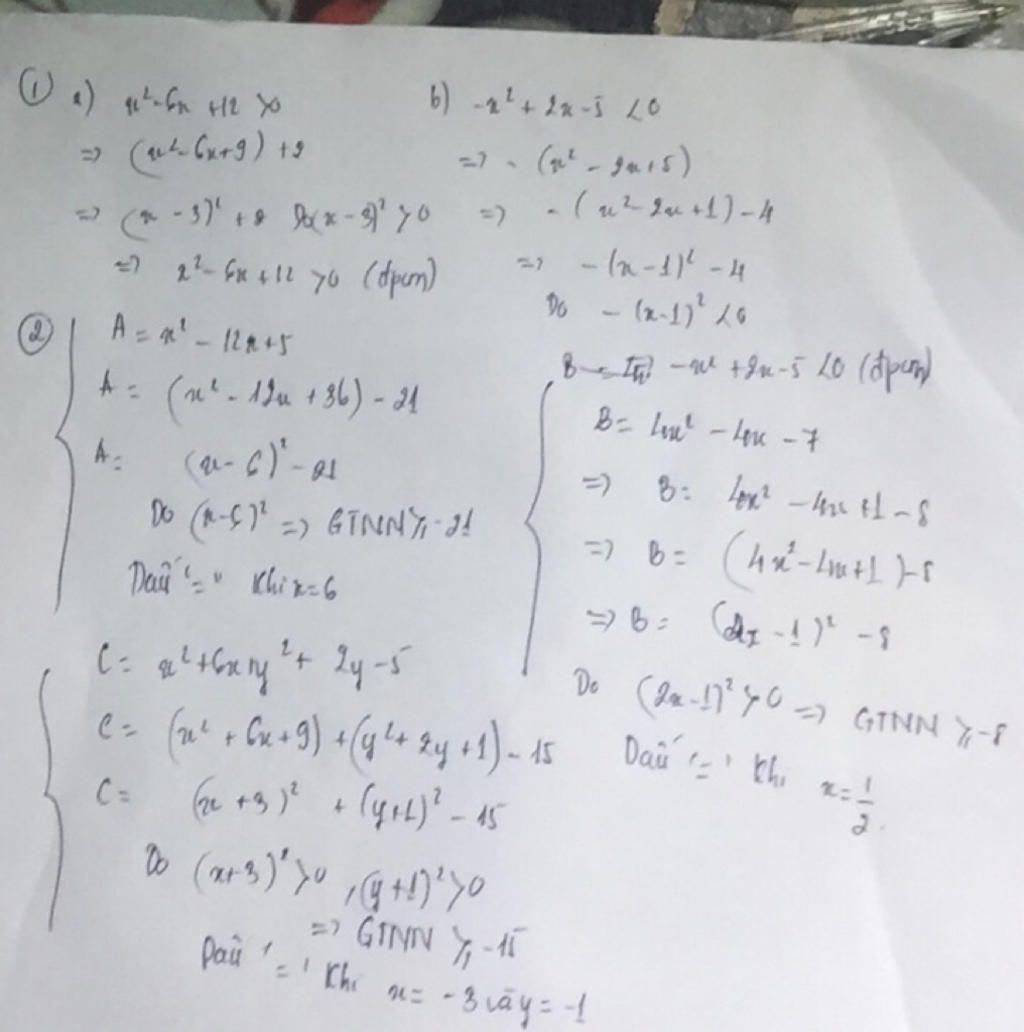 ① a) x² - 6x + 12 > 0
=> (x² - 6x + 9) + 2
=> (x - 3)² + 2 Do (x - 3)² > 0
=> x² - 6x + 12 > 0 (đpcm)
b) -x² + 2x - 5 < 0
=> - (x² - 2x + 5)
=> - (x² - 2x + 1) - 4
=> - (x - 1)² - 4
Do - (x - 1)² < 0
-x² + 2x - 5 < 0 (đpcm)
② A = x² - 12x + 5
A = (x² - 12x + 36) - 21
A = (x - 6)² - 21
Do (x - 6)² => GTNN ≥ -21
Dấu "=" khi x = 6
B = 4x² - 4x - 7
=> B = 4x² - 4x + 1 - 8
=> B = (4x² - 4x + 1) - 8
=> B = (2x - 1)² - 8
Do (2x - 1)² > 0 => GTNN ≥ -8
Dấu '=' khi x = 1/2.
C = x² + 6x + y² + 2y - 5
C = (x² + 6x + 9) + (y² + 2y + 1) - 15
C = (x + 3)² + (y + 1)² - 15
Do (x + 3)² > 0, (y + 1)² > 0
=> GTNN ≥ -15
Dấu '=' khi x = -3 và y = -1